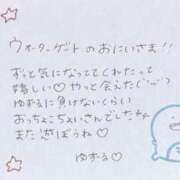 ウォーターゲートのおにいさま!!
ずっと気になっててくれたって
嬉しい♡やっと会えた(´ー｀)
ゆずるに負けないくらい
おっちょこちょいさんでしたね
また遊ぼうね♡
ゆずる♡